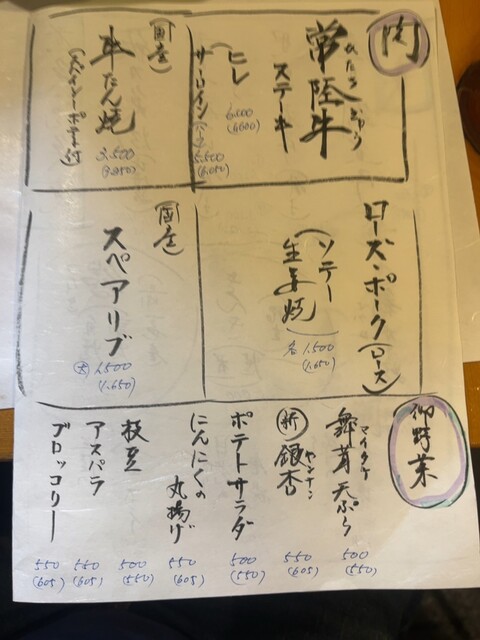 肉
ひたちぎゅう
常陸牛
ステーキ
ヒレ
6.000
(6600)
サーロイン
5.500
(6.050)
(国産)
牛たん焼
3.500
(3.850)
ローズ・ポーク(ロース)
ソテー
生姜焼
各1.500
(1.650)
(国産)
スペアリブ
1.500
(1.650)
御野菜
マイタケ
舞茸天ぷら
500
(550)
新銀杏
ギンナン
550
(605)
ポテトサラダ
500
(550)
にんにくの
丸揚げ
550
(605)
枝豆
500
(550)
アスパラ
550
(605)
ブロッコリー
550
(605)